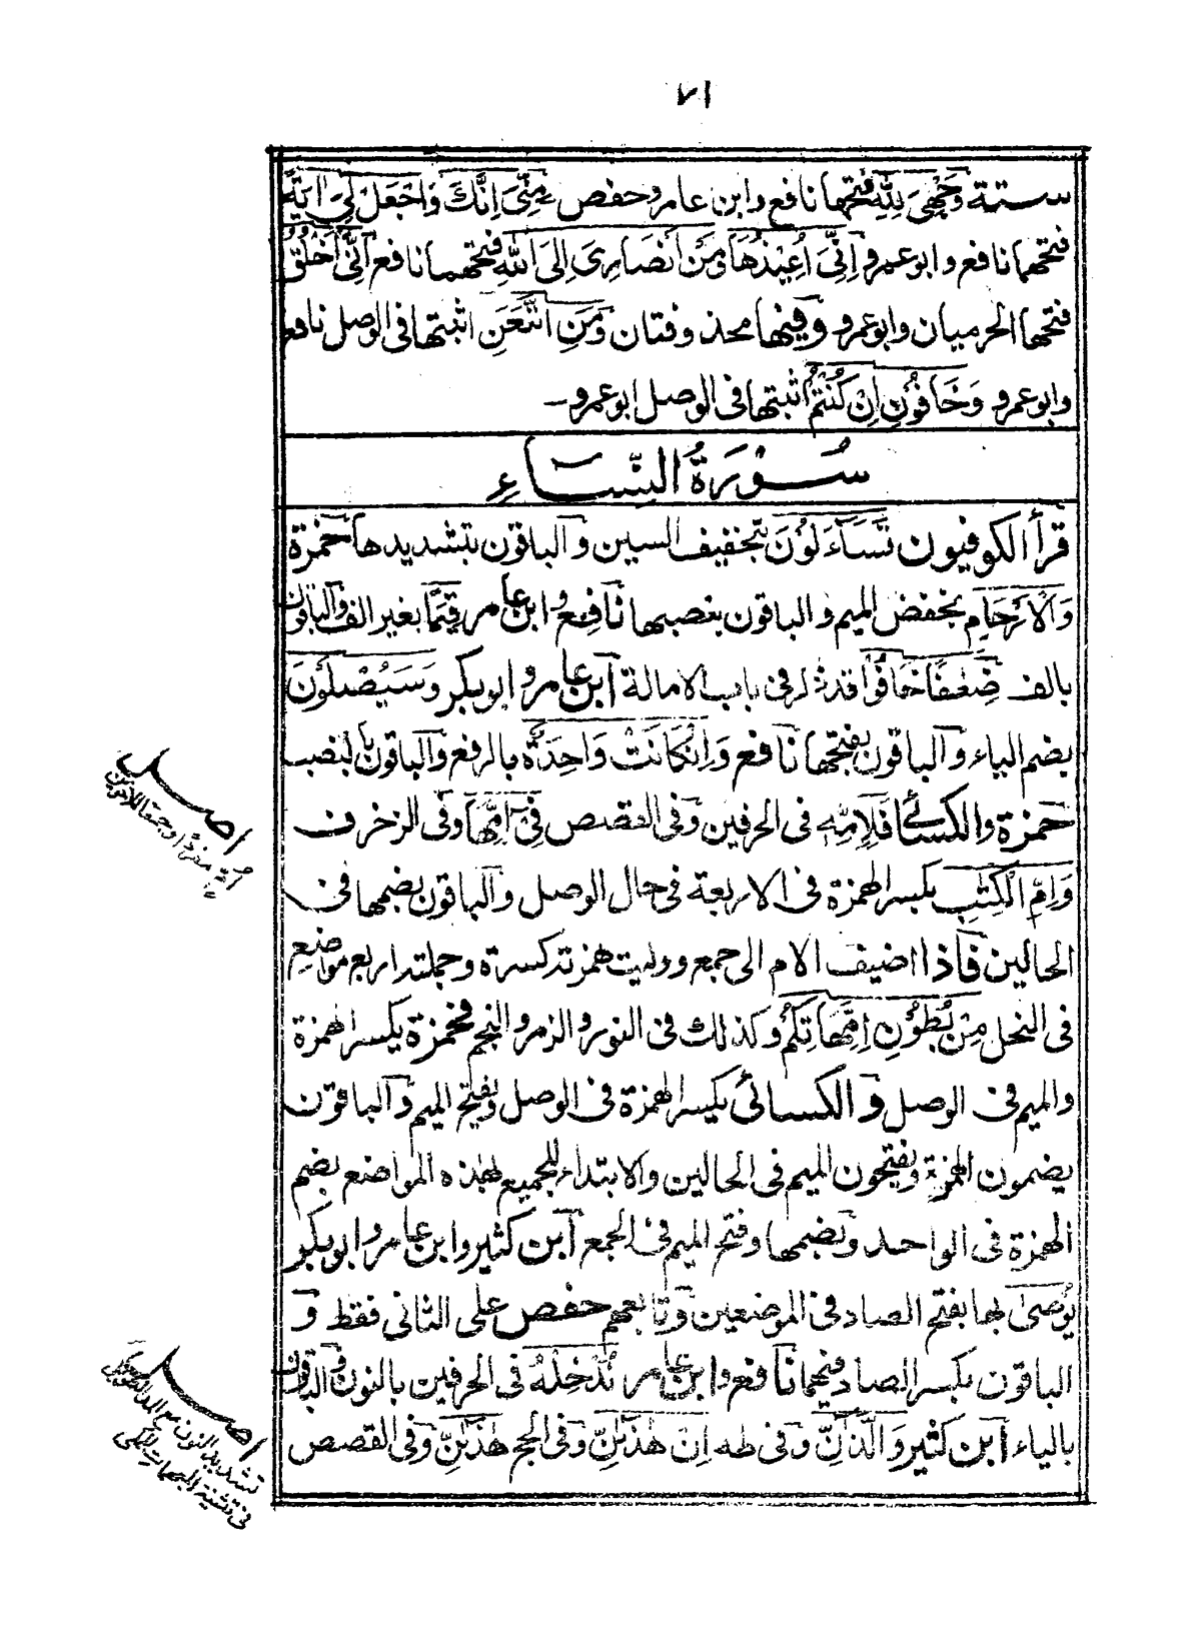 ٧١
ستة وَجْهِىَ لِلّٰهِ فتحها نافع وابن عامر وحفص مِنِّىَ اِنَّكَ وَاجْعَلْ لِىَ ايَةً
فتحهما نافع وابو عمرو اِنِّىَ اُعِيْذُهَا وَمَنْ اَنْصَارِىَ اِلَى اللّٰهِ فتحهما نافع اَنِّىَ اَخْلُقُ
فتحها الحرميان وابو عمرو وفيها محذوفتان وَمَنِ اتَّبَعَنِ اثبتها فى الوصل نافع
وابو عمرو وَخَافُوْنِ اِنْ كُنْتُمْ اثبتها فى الوصل ابو عمرو
سُوْرَةُ النِّسَاءِ
قرأ الكوفيون تَسَاءَلُوْنَ بتخفيف السين والباقون بتشديدها حمزة
وَالْاَرْحَامِ بخفض الميم والباقون بنصبها نافع وابن عامر قِيَمًا بغير الف والباقون
بالف ضِعٰفًا خَافُوْا قد ذكر فى باب الامالة ابن عامر وابو بكر وَسَيُصْلَوْنَ
بضم الياء والباقون بفتحها نافع وَاِنْ كَانَتْ وَاحِدَةٌ بالرفع والباقون بالنصب
حمزة والكسائى فَلِاِمِّهِ فى الحرفين وفى القصص فِىْ اِمِّهَا وفى الزخرف
وَاِمِّ الْكِتٰبِ بكسر الهمزة فى الاربعة فى حال الوصل والباقون بضمها فى
الحالين فاذا اضيف الام الى جمع ووليت همزته كسرة وجملته اربع مواضع
فى النحل مِنْ بُطُوْنِ اِمِّهَاتِكُمْ وكذلك فى النور والزمر والنجم فحمزة يكسر الهمزة
والميم فى الوصل والكسائى يكسر الهمزة فى الوصل ويفتح الميم والباقون
يضمون الهمزة ويفتحون الميم فى الحالين والابتداء للجميع لهذه المواضع بضم
الهمزة فى الواحد وبضمها وفتح الميم فى الجمع ابن كثير وابن عامر وابو بكر
يُوْصٰى بها بفتح الصاد فى الموضعين وتابعهم حفص على الثانى فقط و
الباقون بكسر الصاد فيهما نافع وابن عامر نُدْخِلْهُ فى الحرفين بالنون والباقون
بالياء ابن كثير وَالَّذٰنِّ وفى طه اِنَّ هٰذٰنِّ وفى الحج هٰذٰنِّ وفى القصص
اصل
اُمّ مفردا وجمعا للاخوين
اصل
تشديد النون مع المد
فى تثنية المبهمات للمكى